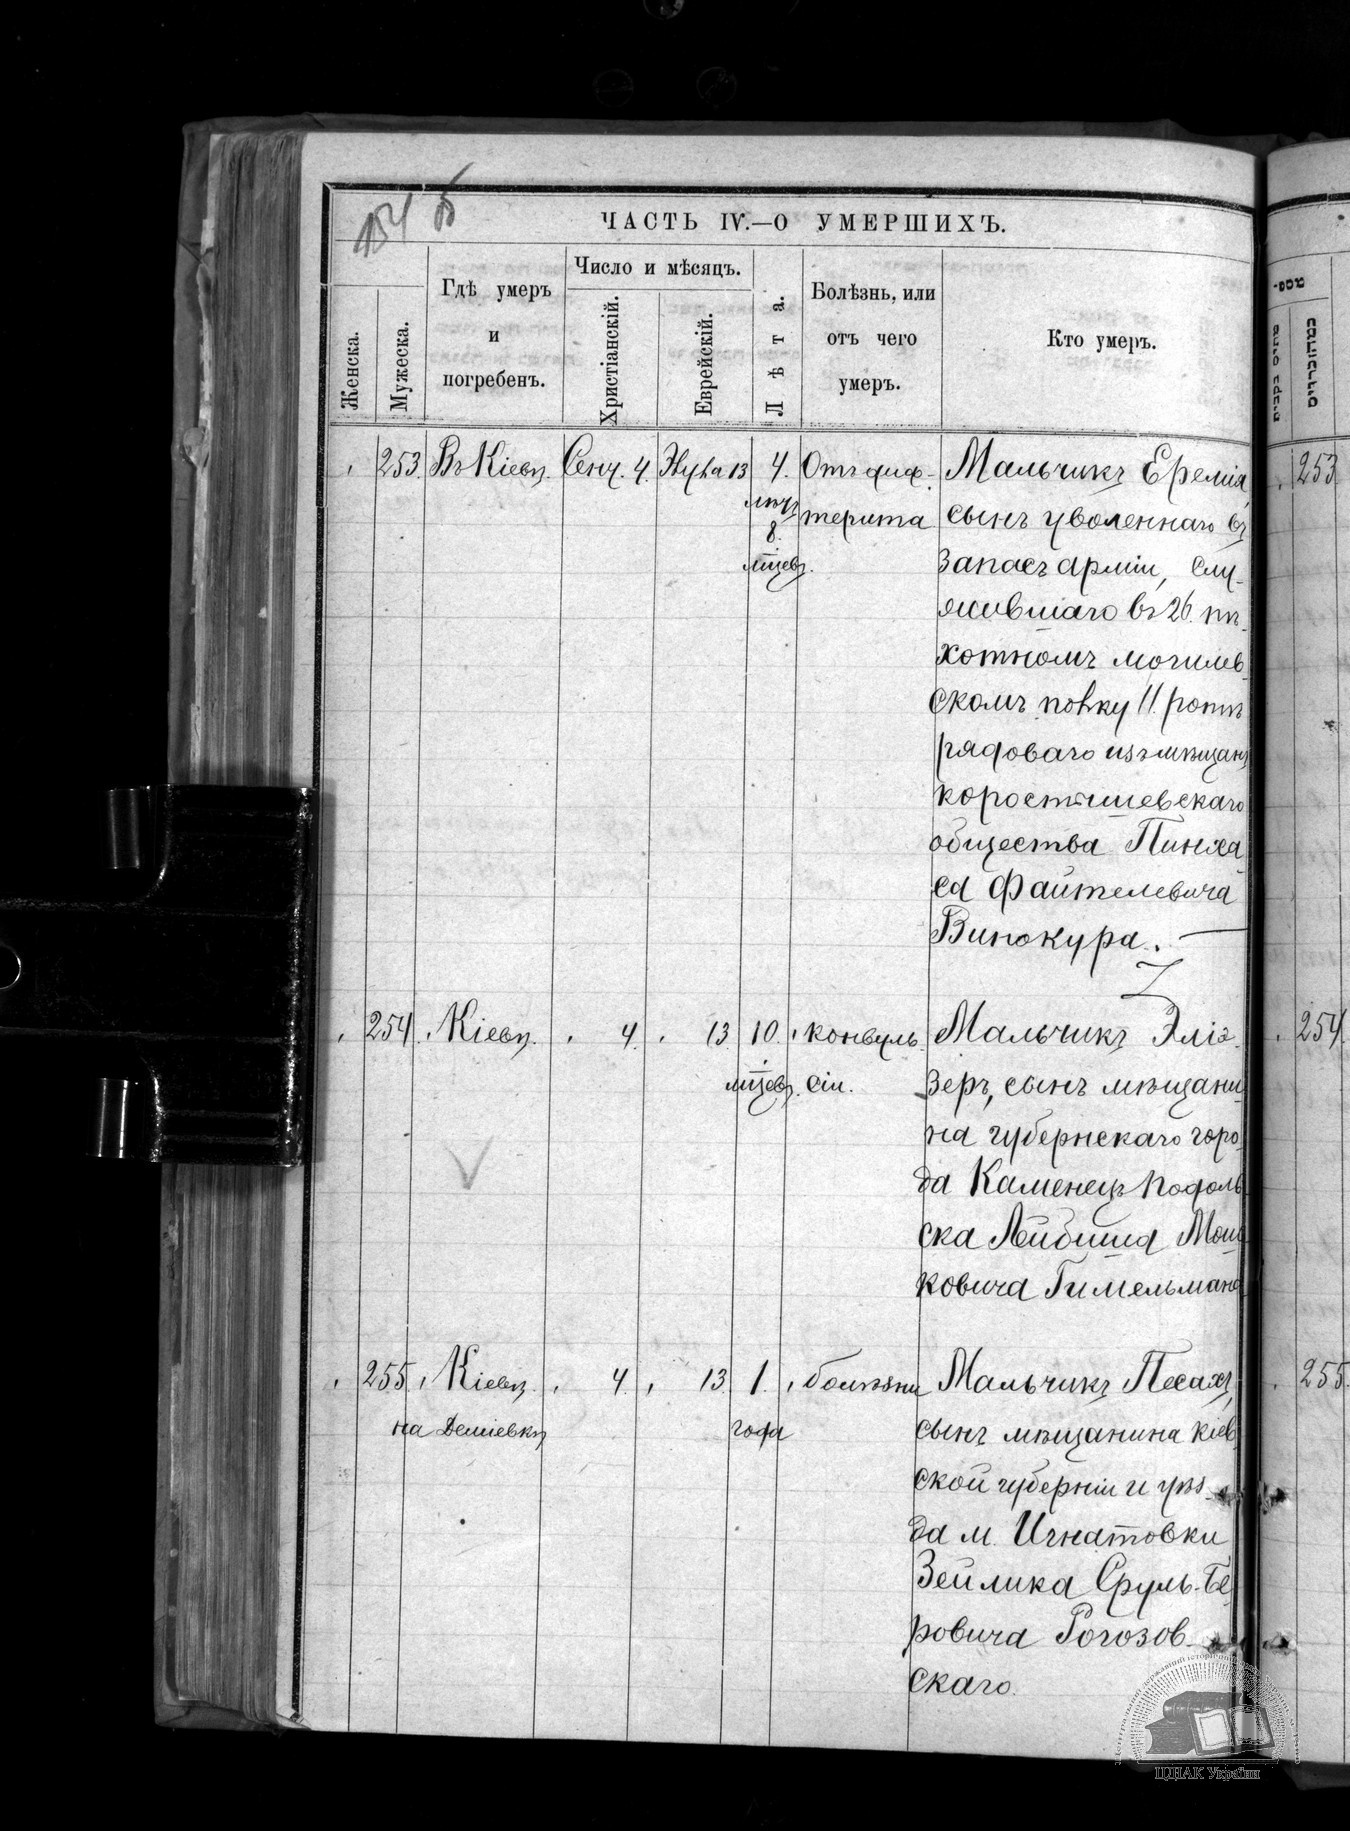 154 об
ЧАСТЬ IV.—О УМЕРШИХЪ.
Женска.
Мужеска.
Гдѣ умеръ
и
погребенъ.
Число и мѣсяцъ.
Христіанскій.
Еврейскій.
Лѣта.
Болѣзнь, или
отъ чего
умеръ.
Кто умеръ.
253. Въ Кіевѣ. Сент. 4. Элула 13 4. Отъ диф- Мальчикъ Еремія, 253
лѣтъ терита сынъ уволеннаго въ
8.
мѣцевъ. запасъ арміи, слу-
жившаго въ 26. пѣ-
хотномъ могилев-
скомъ полку 11. ротѣ
рядоваго изъ мѣщанъ
коростышевскаго
общества Пинха
са Файтелевича
Винокура. —
254. Кіевѣ. 4. 13 10. конвуль- Мальчикъ Эліэ- 254.
мѣцевъ. сіи. зеръ, сынъ мѣщани-
на губернскаго горо-
да Каменецъ подоль
ска Лейбиша Мош
ковича Гимельмана
255. Кіевѣ. 4. 13 1. болѣзни Мальчикъ Песахъ, 255.
на Деміевкѣ года сынъ мѣщанина кіев
ской губерніи и уѣз-
да м. Игнатовки
Зейлика Сруль-Бе
ровича Рогозов-
скаго.
ЦДІАК України